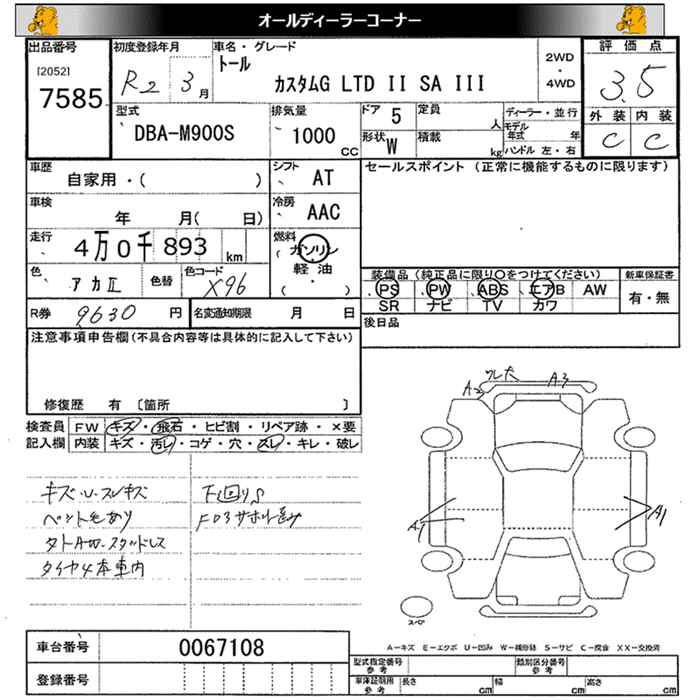 オールディーラーコーナー
出品番号
[2052]
7585
初度登録年月
R2 3月
車名・グレード
トール
カスタムG LTD II SA III
2WD
・
4WD
評価点
3.5
外装 内装
C C
型式
DBA-M900S
排気量
1000 CC
ドア 5
定員 人
形状 W
積載 kg
ディーラー・並行
モデル年式 年
ハンドル 左・右
車歴
自家用・( )
シフト
AT
車検
年 月( 日)
冷房
AAC
走行
4万0千893 km
燃料
(ガソリン
軽油
( ・ )
色
アカII
色替
色コード
X96
R券 9630 円
名変通知期限 月 日
セールスポイント (正常に機能するものに限ります)
装備品 (純正品に限り○をつけてください)
PS PW ABS エアB AW
SR ナビ TV カワ
新車保証書
有・無
後日品
注意事項申告欄(不具合内容等は具体的に記入して下さい)
修復歴 有 〔箇所 〕
検査員
記入欄
FW キズ・飛石・ヒビ割・リペア跡・×要
内装 キズ・汚レ・コゲ・穴・スレ・キレ・破レ
キズ・U・スレキズ
ペイント色あり
タイヤ4本車内
下回りS
A2
A3
A1
A1
スペア
A－キズ E－エクボ U－凹み W－補修跡 S－サビ C－腐食 XX－交換済
車台番号 0067108
登録番号
型式指定番号
参考
類別区分番号
参考
車庫証明用
参考
長さ cm
幅 cm
高さ cm